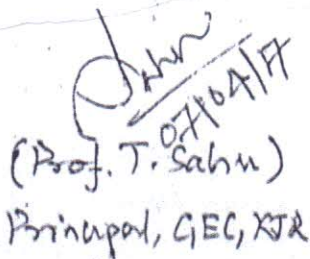 07/04/17
(Prof. T. Sahu)
Principal, GEC, KJR